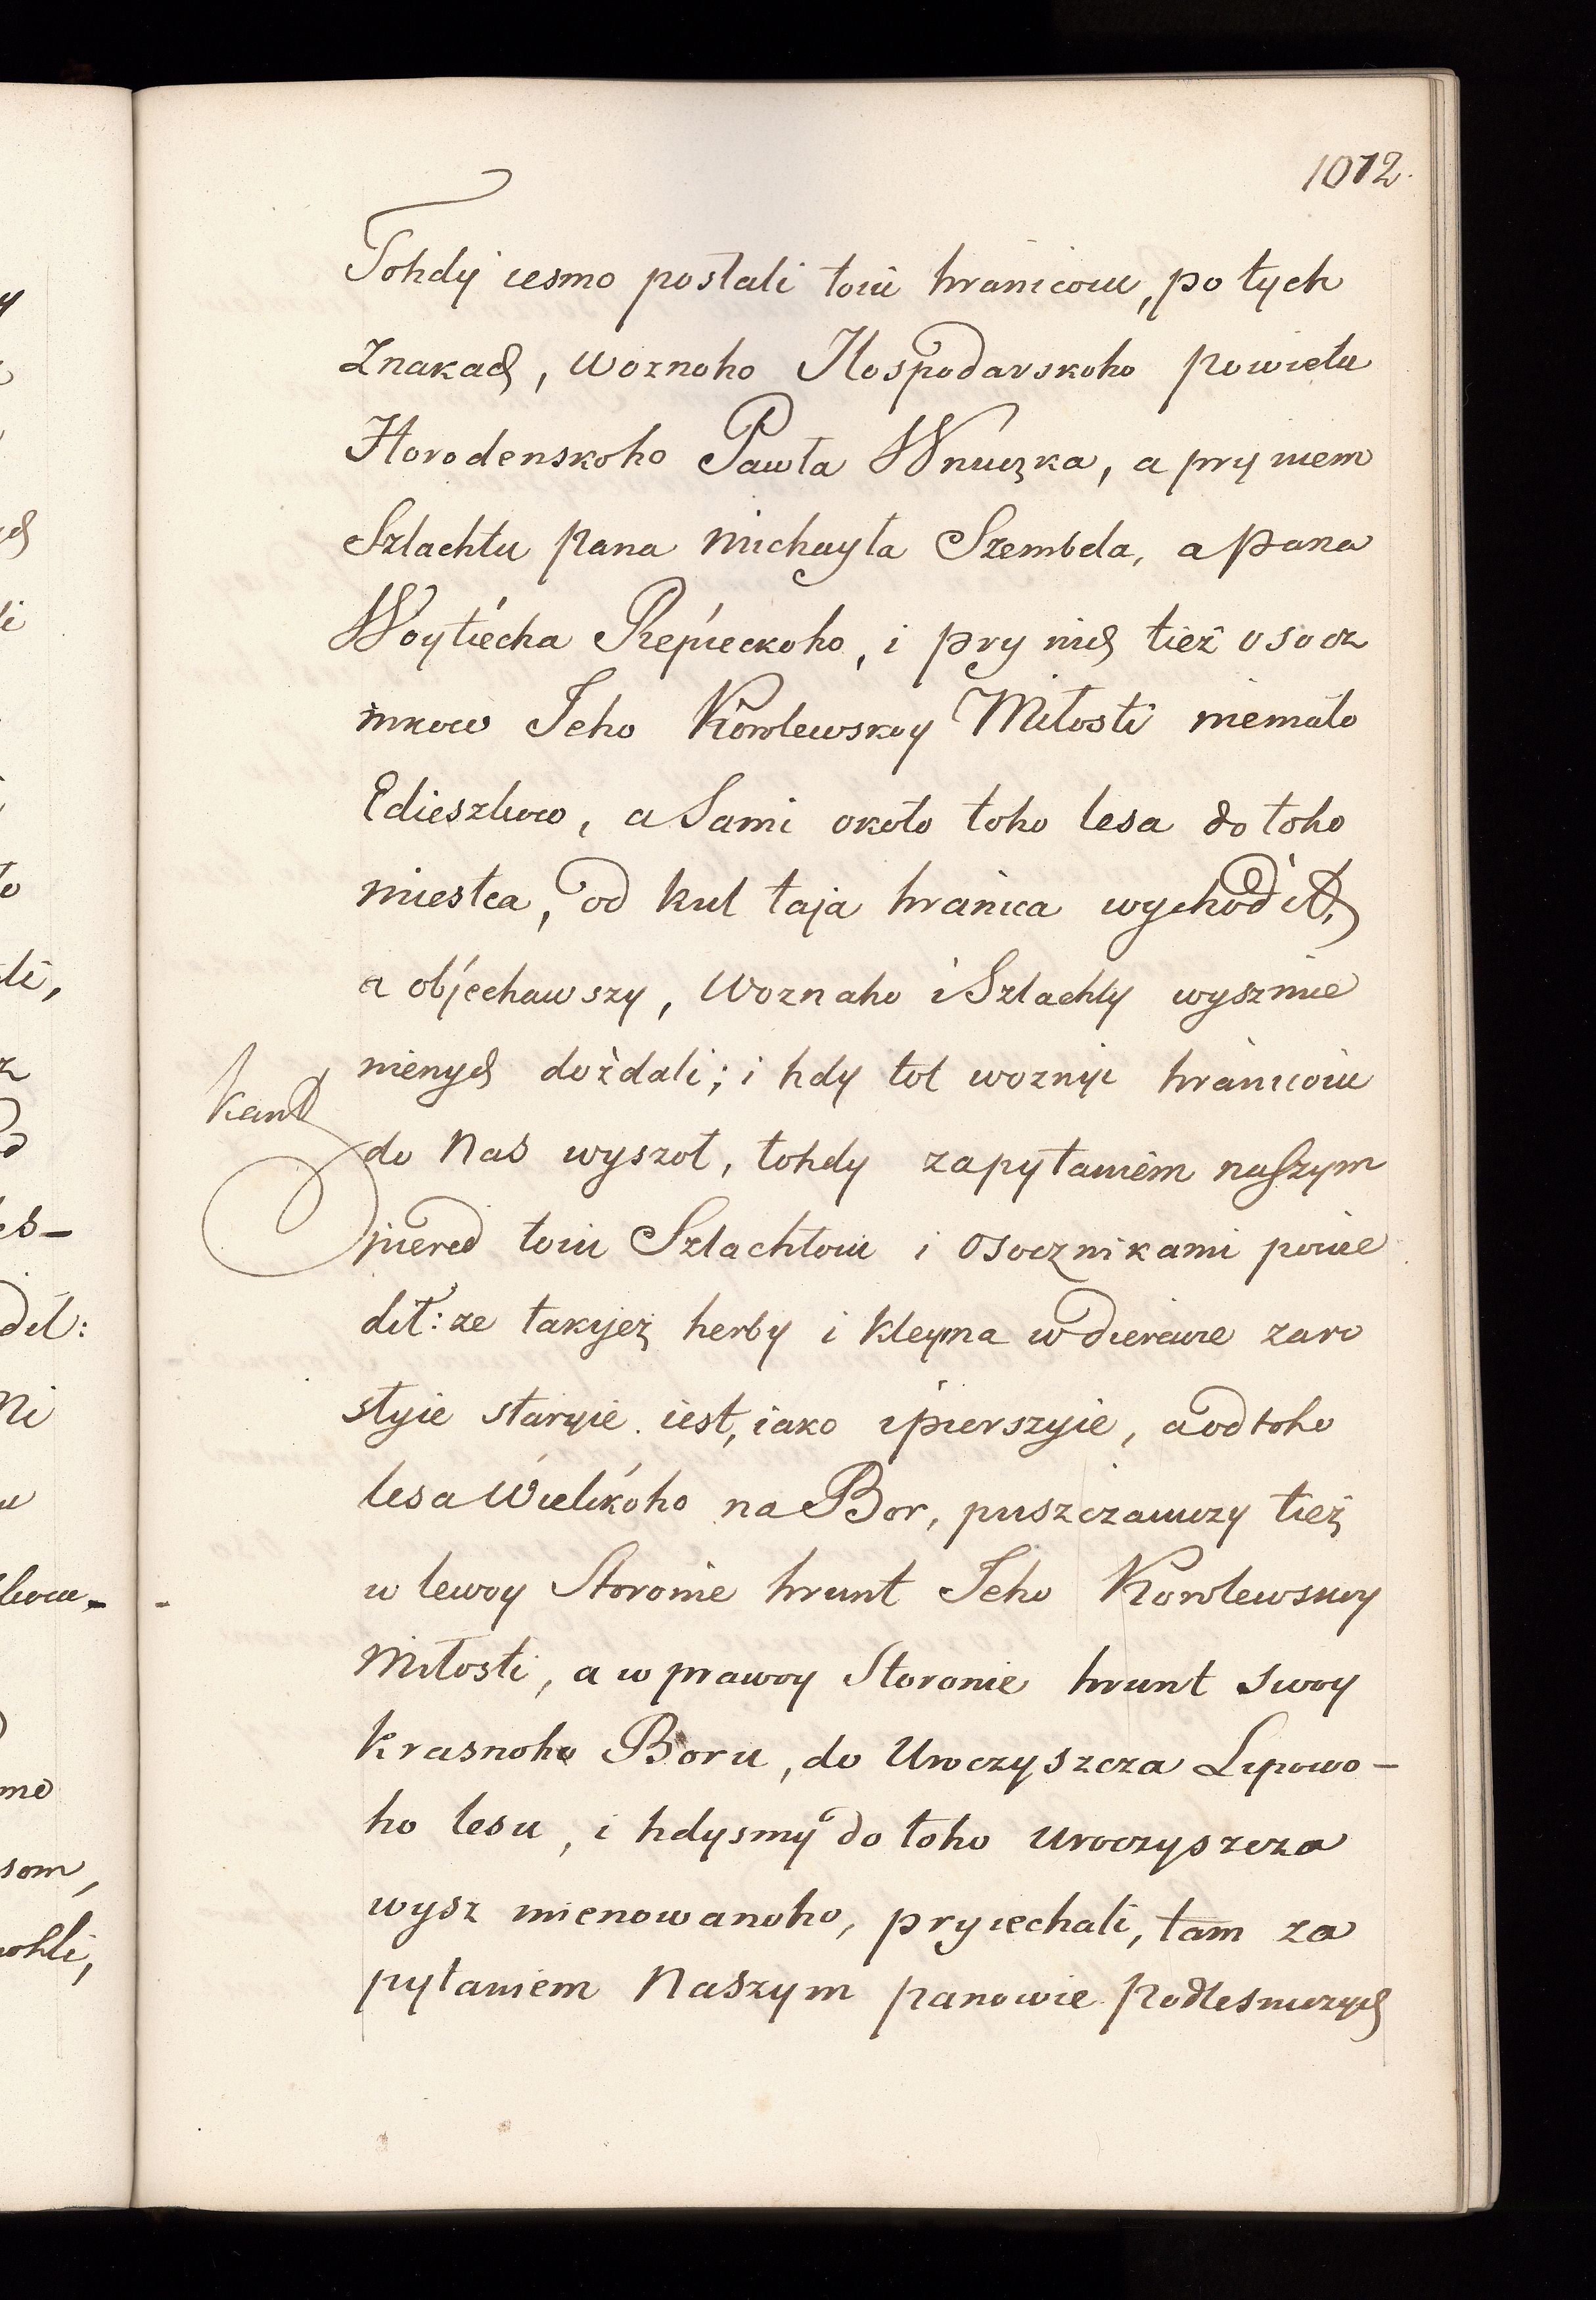 1012.
Tohdy iesmo postali toiu hranicoiu, po tych
Znakach, woznoho Hospodarskoho powietu
Horodenskoho Pawła Wnuczka, a pry niem
Szlachtu pana Michayła Szembela, a pana
Woytiecha Rzepieckoho, i pry nich tież osocz
nikow Jeho Korolewskoy Miłosti niemało
Edieszluow, a Sami około toho lesa do toho
miestca, od kul taja hranica wychodit,
a objechawszy, Woznaho i Szlachty wyszmie
nienych dożdali; i hdy tot woznyi hranicoiu
do Nas wyszoł, tohdy zapytaniem naszym
piered toiu Szlachtoiu i osocznikami powie
dił: ze takijeż herby i kleyma w dierewie zaro
styie staryie iest, iako i pierszyie, a od toho
lesa Wielikoho na Bor, puszczawszy tież
w lewoy Storonie hrunt Jeho Korolewskoy
Miłosti, a w prawoy Storonie hrunt swoy
Krasnoho Boru, do Uroczyszcza Lipowo-
ho lesu, i hdysmy do toho uroczyszcza
wysz mienowanoho, pryiechali, tam za
pytaniem Naszym panowie Podlesniczych